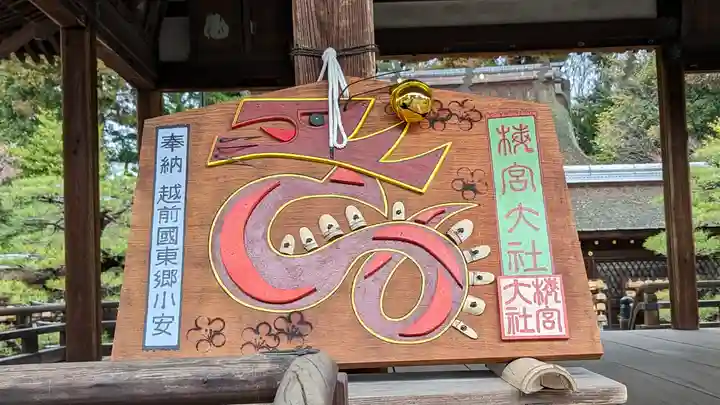 梅宮大社
梅宮
大社
奉納 越前國東郷小安